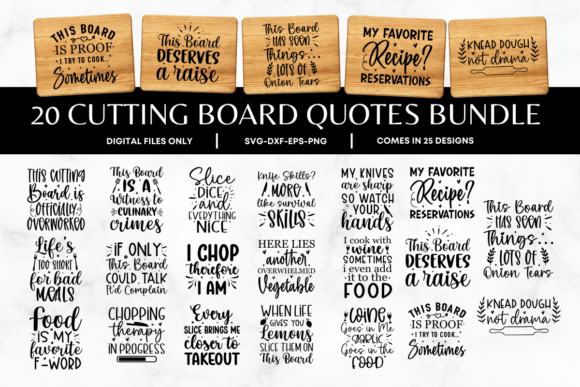 THIS BOARD
IS PROOF
I TRY TO COOK...
Sometimes
This Board
DESERVES
a raise
This Board
HAS SEEN
Things...
LOTS OF
Onion Tears
MY FAVORITE
Recipe?
RESERVATIONS
KNEAD DOUGH
not drama
20 CUTTING BOARD QUOTES BUNDLE
DIGITAL FILES ONLY
SVG-DXF-EPS-PNG
COMES IN 25 DESIGNS
THIS CUTTING
Board is
OFFICIALLY
OVERWORKED
This Board
IS A
WITNESS to
CULINARY
crimes
Slice
DICE
and
EVERYTHING
NICE
Knife Skills?
MORE
like survival
SKILLS
MY KNIVES
are sharp
SO WATCH
YOUR
hands
MY FAVORITE
Recipe?
RESERVATIONS
This Board
HAS SEEN
Things...
LOTS OF
Onion Tears
Life's
TOO SHORT
for bad
MEALS
IF ONLY
This Board
COULD TALK
It'd Complain
I CHOP
therefore
I AM
HERE LIES
another
OVERWHELMED
Vegetable
I cook with
wine
SOMETIMES
i even add
it to the
FOOD
This Board
DESERVES
a raise
KNEAD DOUGH
not drama
Food
IS MY
favorite
F-WORD
CHOPPING
therapy
IN PROGRESS
Every
SLICE BRINGS ME
closer to
TAKEOUT
WHEN LIFE
GIVES YOU
Lemons
SLICE THEM ON
This Board
WINE
Goes in Me
GARLIC
Goes in the
FOOD
THIS BOARD
IS PROOF
I TRY TO COOK...
Sometimes